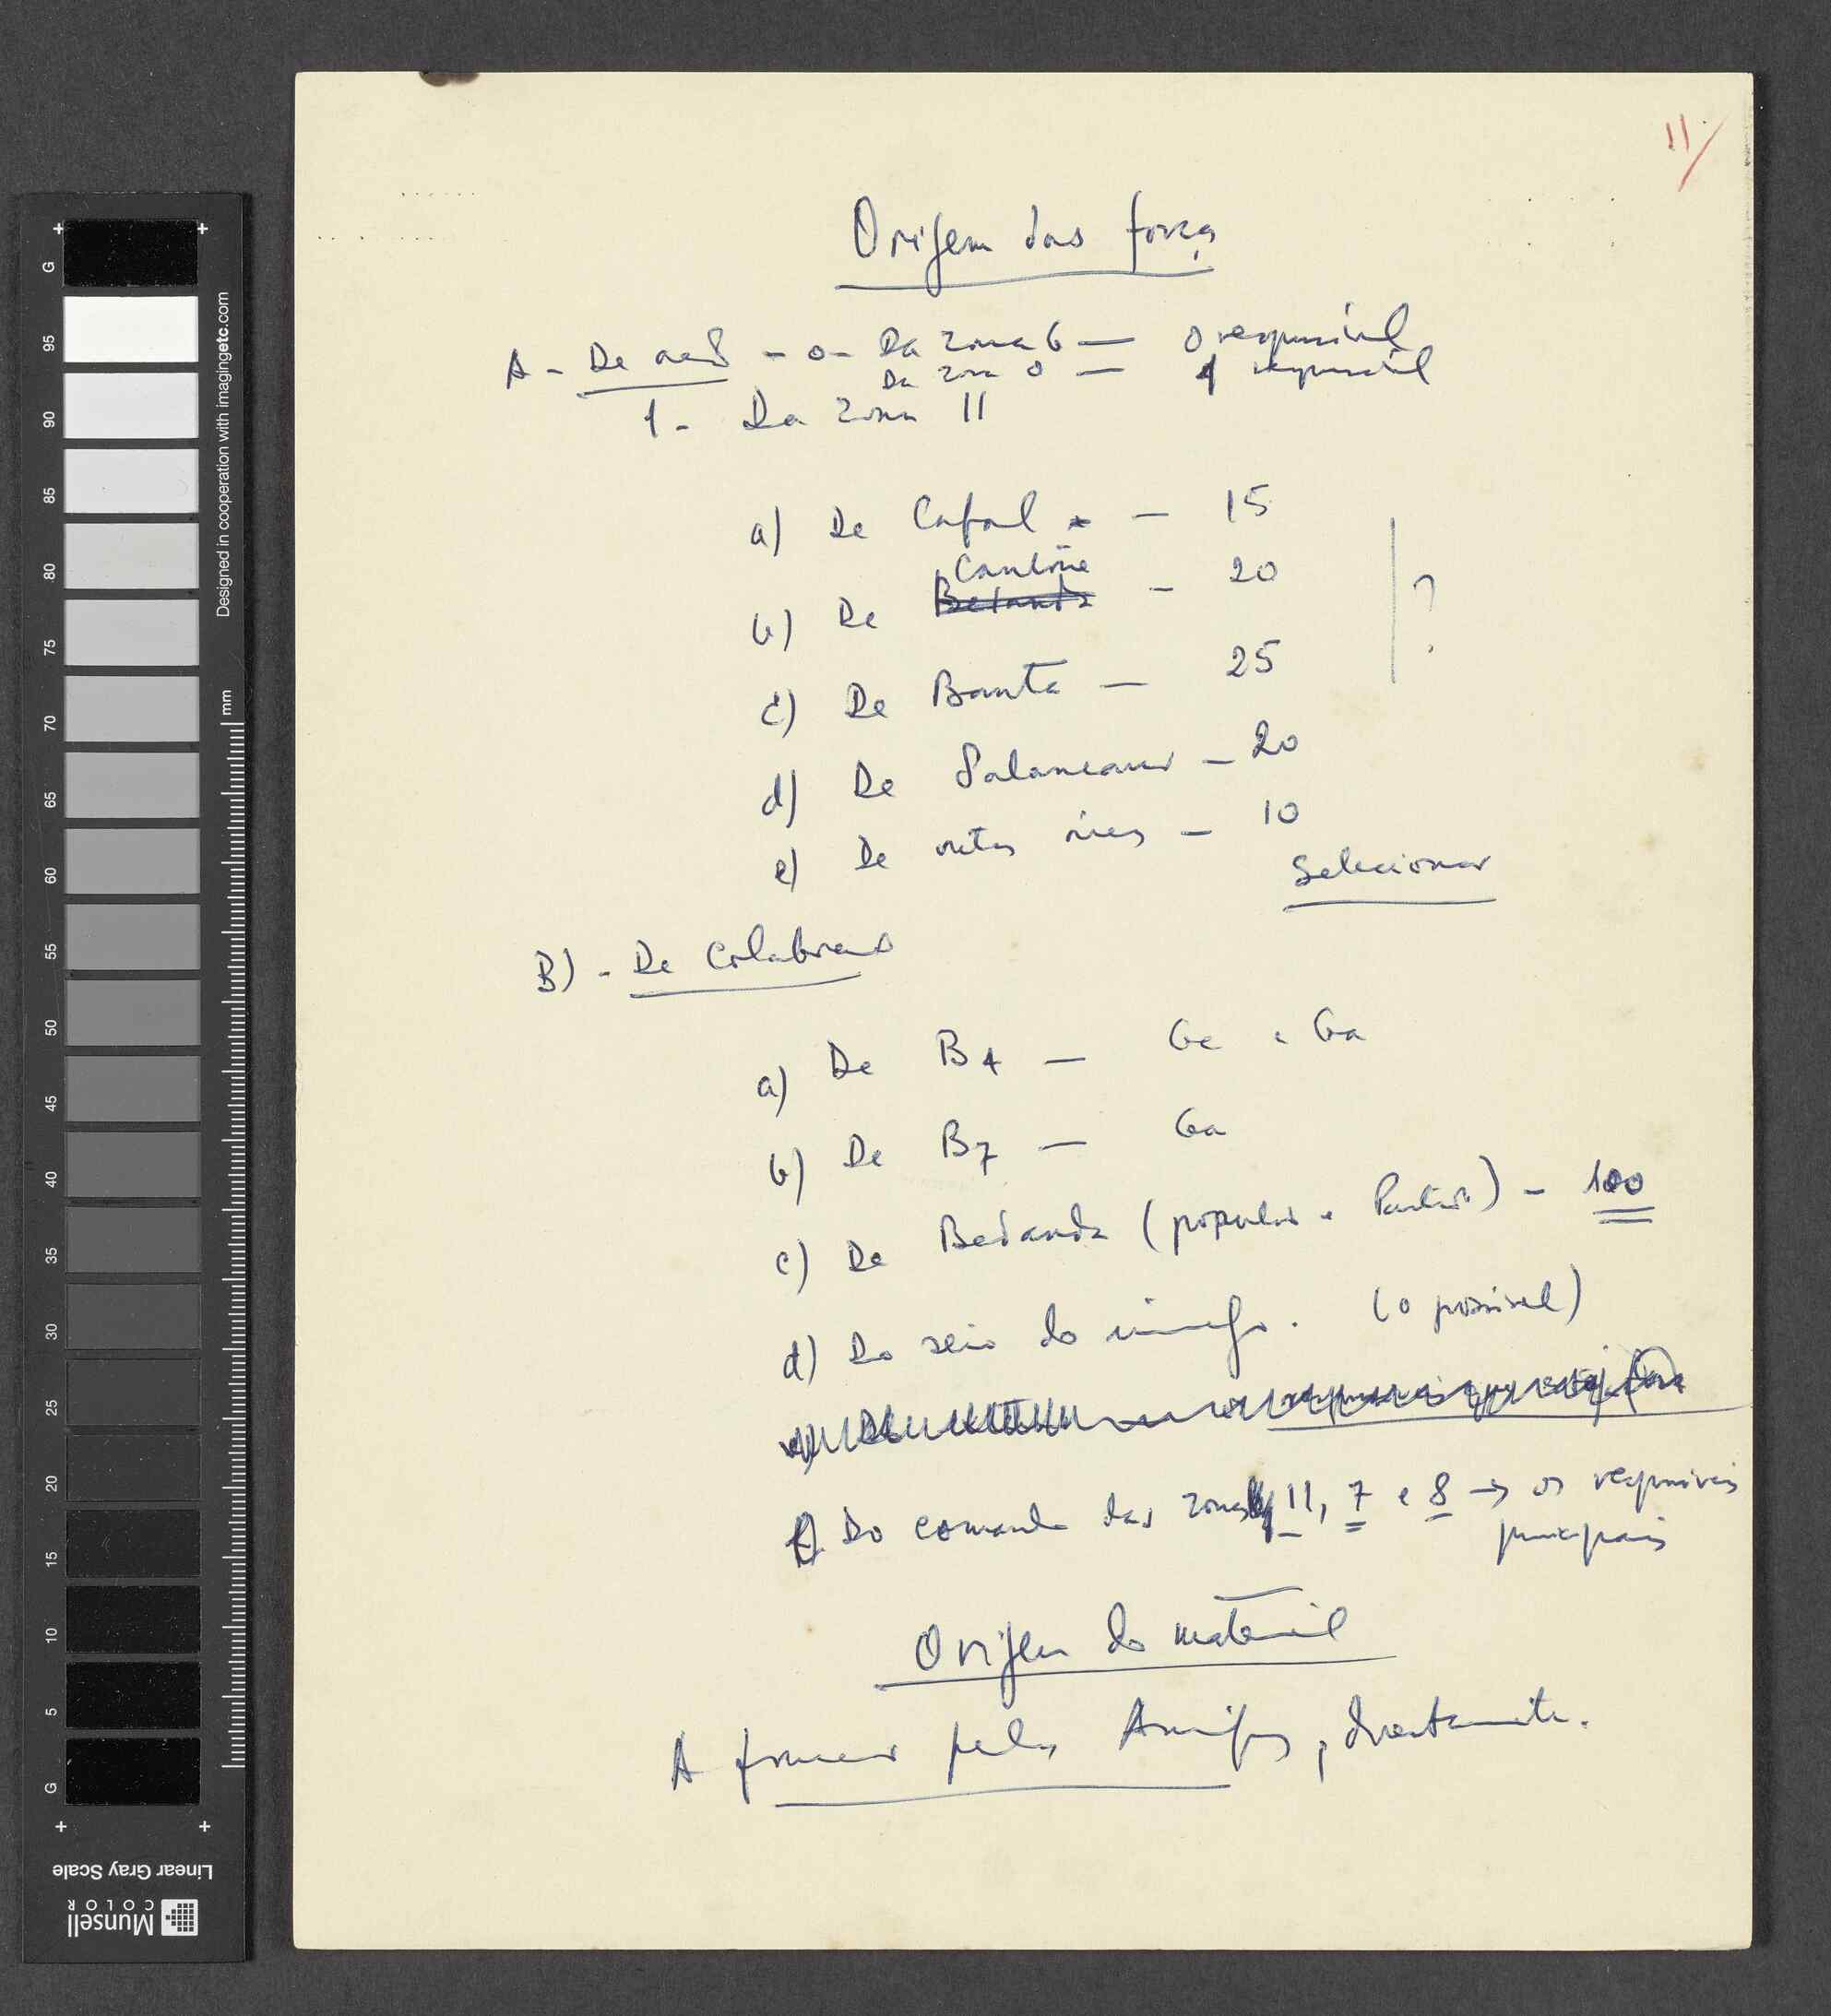 11/
Origem das forças
A - De acção - o - Da zona 6 — o responsável
Da zona 8 — 1 responsável
1 - Da zona 11
a) De Cafal — 15
Cantone
b) De Bedanda — 20
c) De Banta — 25
?
d) De Salancaur — 20
e) De outras áreas — 10
Selecionar
B) - De Colaboração
a) De B4 — Ge e Ga
b) De B7 — Ga
c) De Bedanda (população e Partido) — 100
d) Do seio do inimigo. (o possível)
Do comando das zonas 11, 7 e 8 → os responsáveis
principais
Origem do material
A fornecer pelos Amigos, directamente.
G 95 90 85 80 75 70 65 60 55 50 45 40 35 30 25 20 15 10 5 G
Designed in cooperation with imagingetc.com
mm
Linear Gray Scale
Munsell
COLOR